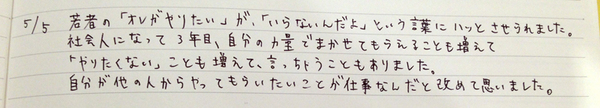 5/5 若者の「オレがヤリたい」が、「いらないんだよ」という言葉にハッとさせられました。
社会人になって3年目、自分の力量でまかせてもらえることも増えて
「やりたくない」ことも増えて、言っちゃうこともありました。
自分が他の人からやってもらいたいことが仕事なんだと改めて思いました。